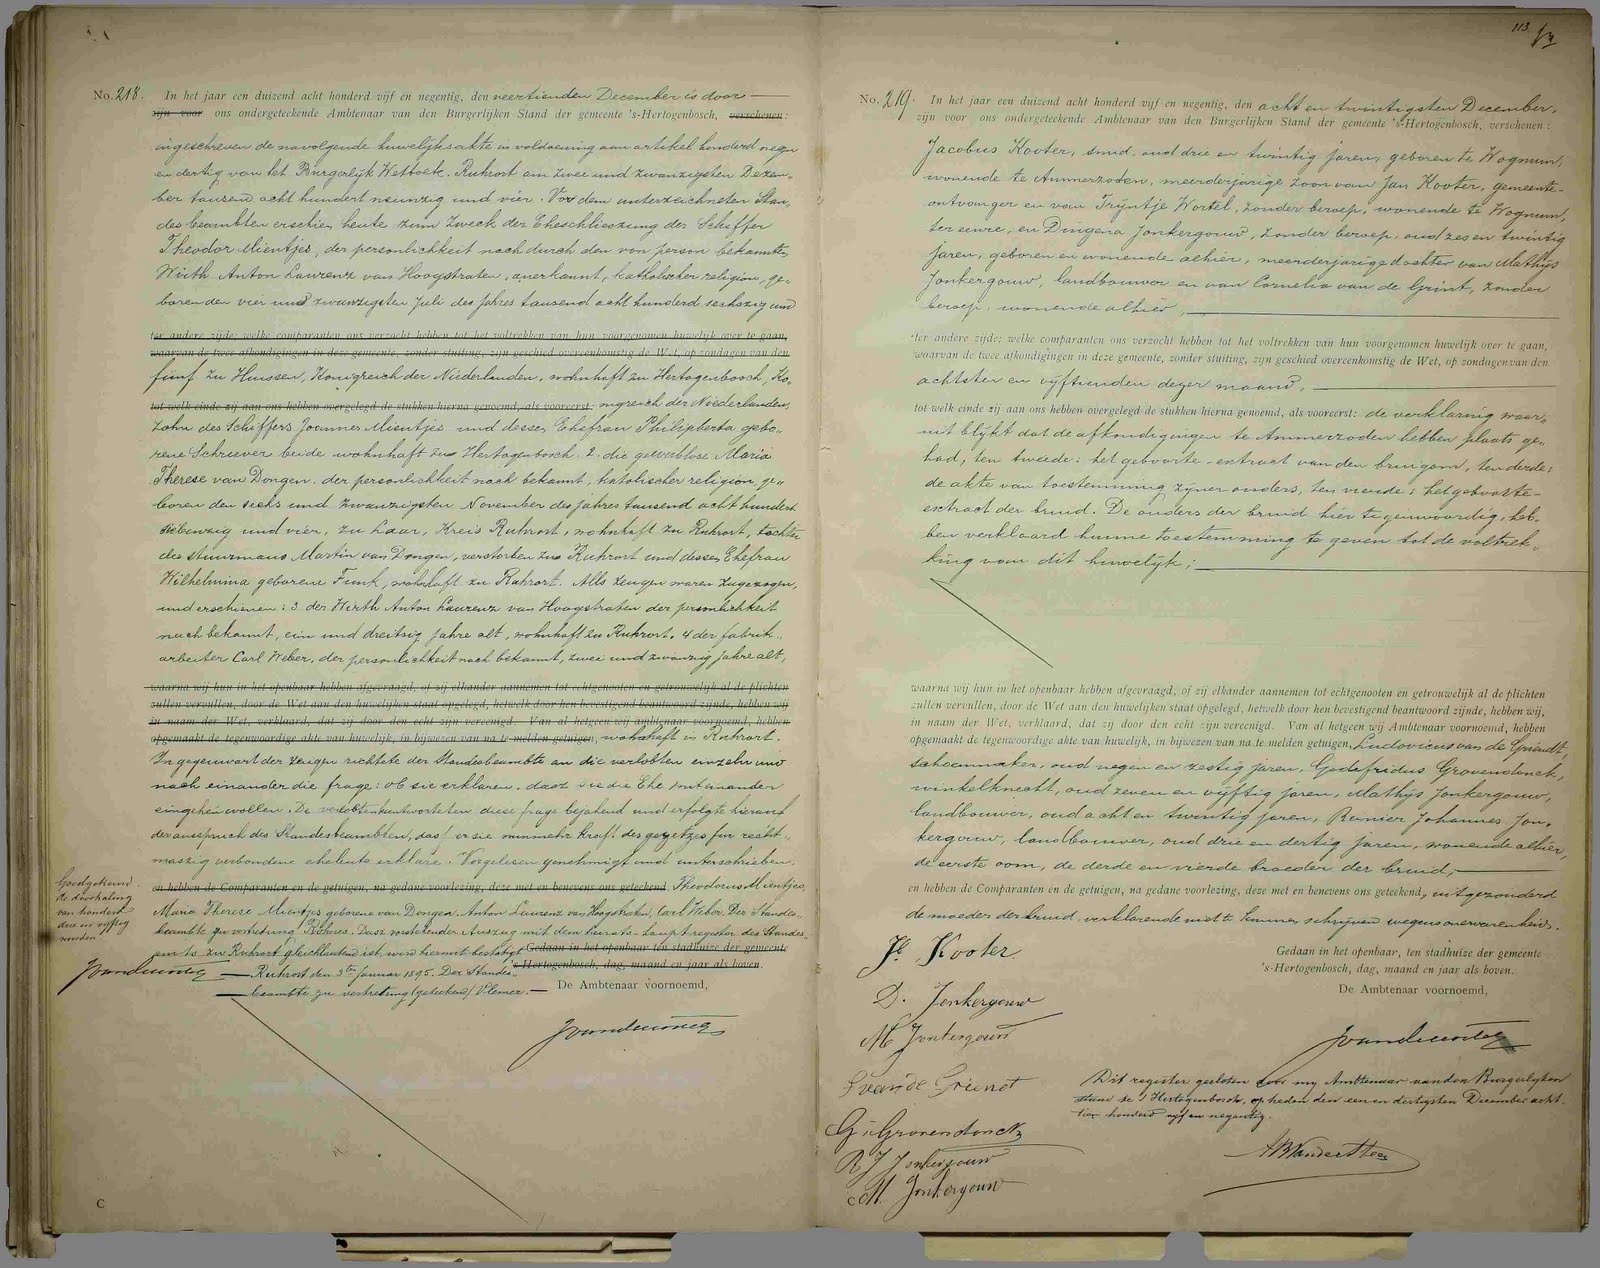 No. 218. In het jaar een duizend acht honderd vijf en negentig, den veertienden December is door
zijn voor ons ondergeteekende Ambtenaar van den Burgerlijken Stand der gemeente 's-Hertogenbosch, verschenen:
ingeschreven de navolgende huwelijksakte in voldoening aan artikel honderd negen
en dertig van het Burgerlijk Wetboek. Ruhrort am zwei und zwanzigsten Dezem-
ber tausend acht hundert neunzig und vier. Vor dem unterzeichneten Stan-
desbeambten erschien heute zum Zweck der Eheschlieszung der Schiffer
Theodor Mientjes, der personlichkeit nach durch den von person bekannten
Wirth Anton Laurenz van Hoogstraten, anerkannt, katholischer religion, ge-
boren den vier und zwanzigsten Juli des Jahres tausend acht hundert sechszig und
ter andere zijde; welke comparanten ons verzocht hebben tot het voltrekken van hun voorgenomen huwelijk over te gaan,
waarvan de twee afkondigingen in deze gemeente, zonder stuiting, zijn geschied overeenkomstig de Wet, op zondagen van den
fünf zu Huissen, Königreich der Niederlanden, wohnhaft zu Hertogenbosch, Kö-
tot welk einde zij aan ons hebben overgelegd de stukken hierna genoemd, als vooreerst: nigreich der Niederlanden,
Zohn des Schiffers Joannes Mientjes und dessen Ehefrau Philipberta gebo-
rene Schriever beide wohnhaft zu Hertogenbosch. 2. die gewerblose Maria
Therese van Dongen, der personlichkeit nach bekannt, katolischer religion, ge-
boren den sechs und zwanzigsten November des jahres tausend acht hundert
siebenzig und vier, zu Laar, Kreis Ruhrort, wohnhaft zu Ruhrort, tochter
des stuurmans Martin van Dongen, verstorben zu Ruhrort und dessen Ehefrau
Wilhelmina geborene Funk, wohnhaft zu Ruhrort. Als zeugen waren zugezogen,
und erschienen: 3. der Wirth Anton Laurenz van Hoogstraten der personlichkeit
nach bekannt, ein und dreitsig Jahre alt, wohnhaft zu Ruhrort. 4 der fabrik-
arbeiter Carl Weber, der personlichkeit nach bekannt, zwei und zwanzig Jahre alt,
waarna wij hun in het openbaar hebben afgevraagd, of zij elkander aannemen tot echtgenooten en getrouwelijk al de plichten
zullen vervullen, door de Wet aan den huwelijken staat opgelegd, hetwelk door hen bevestigend beantwoord zijnde, hebben wij
in naam der Wet, verklaard, dat zij door den echt zijn vereenigd. Van al hetgeen wij ambtenaar voornoemd, hebben
opgemaakt de tegenwoordige akte van huwelijk, in bijwezen van na te melden getuigen, wohnhaft in Ruhrort.
In gegenwart der zeugen richtete der Standesbeambte an die verlobten einzeln und
nach einander die frage: ob sie erklaren, dasz sie die Ehe miteinander
eingehen wollen. Die verlobten beantworteten diese frage bejahend und erfolgte hierauf
der ausspruch des Standesbeambten, dasz er sie nunmehr kraft des gezetzes für recht-
maszig verbondene eheleute erkläre. Vorgelesen genehmigt und unterschrieben.
en hebben de Comparanten en de getuigen, na gedane voorlezing, deze met en benevens ons geteekend. Theodorus Mientjes,
Maria Therese Mientjes geborene van Dongen. Anton Laurenz van Hoogstraten, Carl Weber. Der Standes-
beambte zu vertretung Dasz vorstehender Auszug mit dem heirats-haupt register des Standes-
amts zu Ruhrort gleichlautend ist, wird hiermit bestätigt. Gedaan in het openbaar ten stadhuize der gemeente
's-Hertogenbosch, dag, maand en jaar als boven.
Ruhrort den 3ten Januar 1895. Der Standes-
beambte zu vertretung (geteekend)
De Ambtenaar voornoemd,
Goedgekeurd
de doorhaling
van honderd
drie en vijftig
woorden
C
113.
No. 219. In het jaar een duizend acht honderd vijf en negentig, den acht en twintigsten December,
zijn voor ons ondergeteekende Ambtenaar van den Burgerlijken Stand der gemeente 's-Hertogenbosch, verschenen:
Jacobus Kooter, smid, oud drie en twintig jaren, geboren te Wognum,
wonende te Ammerzoden, meerderjarige zoon van Jan Kooter, gemeente-
ontvanger en van Trijntje Wortel, zonder beroep, wonende te Wognum,
ter eenre, en Dingena Jonkergouw, zonder beroep, oud zes en twintig
jaren, geboren en wonende alhier, meerderjarige dochter van Mathijs
Jonkergouw, landbouwer en van Cornelia van de Grint, zonder
beroep, wonende alhier,
ter andere zijde; welke comparanten ons verzocht hebben tot het voltrekken van hun voorgenomen huwelijk over te gaan,
waarvan de twee afkondigingen in deze gemeente, zonder stuiting, zijn geschied overeenkomstig de Wet, op zondagen van den
achtsten en vijftienden dezer maand,
tot welk einde zij aan ons hebben overgelegd de stukken hierna genoemd, als vooreerst: de verklaring waar-
uit blijkt dat de afkondigingen te Ammerzoden hebben plaats ge-
had; ten tweede: het geboorte-extract van den bruigom, ten derde:
de akte van toestemming zijner ouders, ten vierde: het geboorte-
extract der bruid. De ouders der bruid hier tegenwoordig, heb-
ben verklaard hunne toestemming te geven tot de voltrek-
king van dit huwelijk;
waarna wij hun in het openbaar hebben afgevraagd, of zij elkander aannemen tot echtgenooten en getrouwelijk al de plichten
zullen vervullen, door de Wet aan den huwelijken staat opgelegd, hetwelk door hen bevestigend beantwoord zijnde, hebben wij,
in naam der Wet, verklaard, dat zij door den echt zijn vereenigd. Van al hetgeen wij Ambtenaar voornoemd, hebben
opgemaakt de tegenwoordige akte van huwelijk, in bijwezen van na te melden getuigen, Ludovicus van de Griendt,
schoenmaker, oud negen en zestig jaren, Godefridus Grovendonck,
winkelknecht, oud zeven en vijftig jaren, Mathijs Jonkergouw,
landbouwer, oud acht en twintig jaren, Renier Johannes Jon-
kergouw, landbouwer, oud drie en dertig jaren, wonende alhier,
de eerste oom, de derde en vierde broeder der bruid,
en hebben de Comparanten en de getuigen, na gedane voorlezing, deze met en benevens ons geteekend, uitgezonderd
de moeder der bruid, verklarende niet te kunnen schrijven wegens onervarenheid.
Gedaan in het openbaar, ten stadhuize der gemeente
's-Hertogenbosch, dag, maand en jaar als boven.
De Ambtenaar voornoemd,
Jb. Kooter
D. Jonkergouw
M Jonkergouw
L van de Grient
G. Grovendonck
R J Jonkergouw
M. Jonkergouw
Dit register gesloten door mij Ambtenaar van den Burgerlijken
stand te 's Hertogenbosch, op heden den een en dertigsten December acht-
tien honderd vijf en negentig.